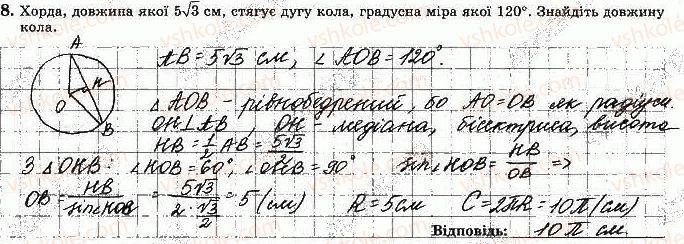 8. Хорда, довжина якої 5√3 см, стягує дугу кола, градусна міра якої 120°. Знайдіть довжину
кола.
A
H
O
B
AB = 5√3 см, ∠AOB = 120°.
△AOB - рівнобедрений, бо AO = OB як радіуси.
OH ⊥ AB, OH - медіана, бісектриса, висота
HB = 1/2 AB = 5√3/2
З △OHB: ∠HOB = 60°, ∠OHB = 90° sin∠HOB = HB/OB =>
OB = HB/sin∠HOB = 5√3/(2·√3/2) = 5 (см) R = 5см C = 2πR = 10π (см)
Відповідь: 10π см.